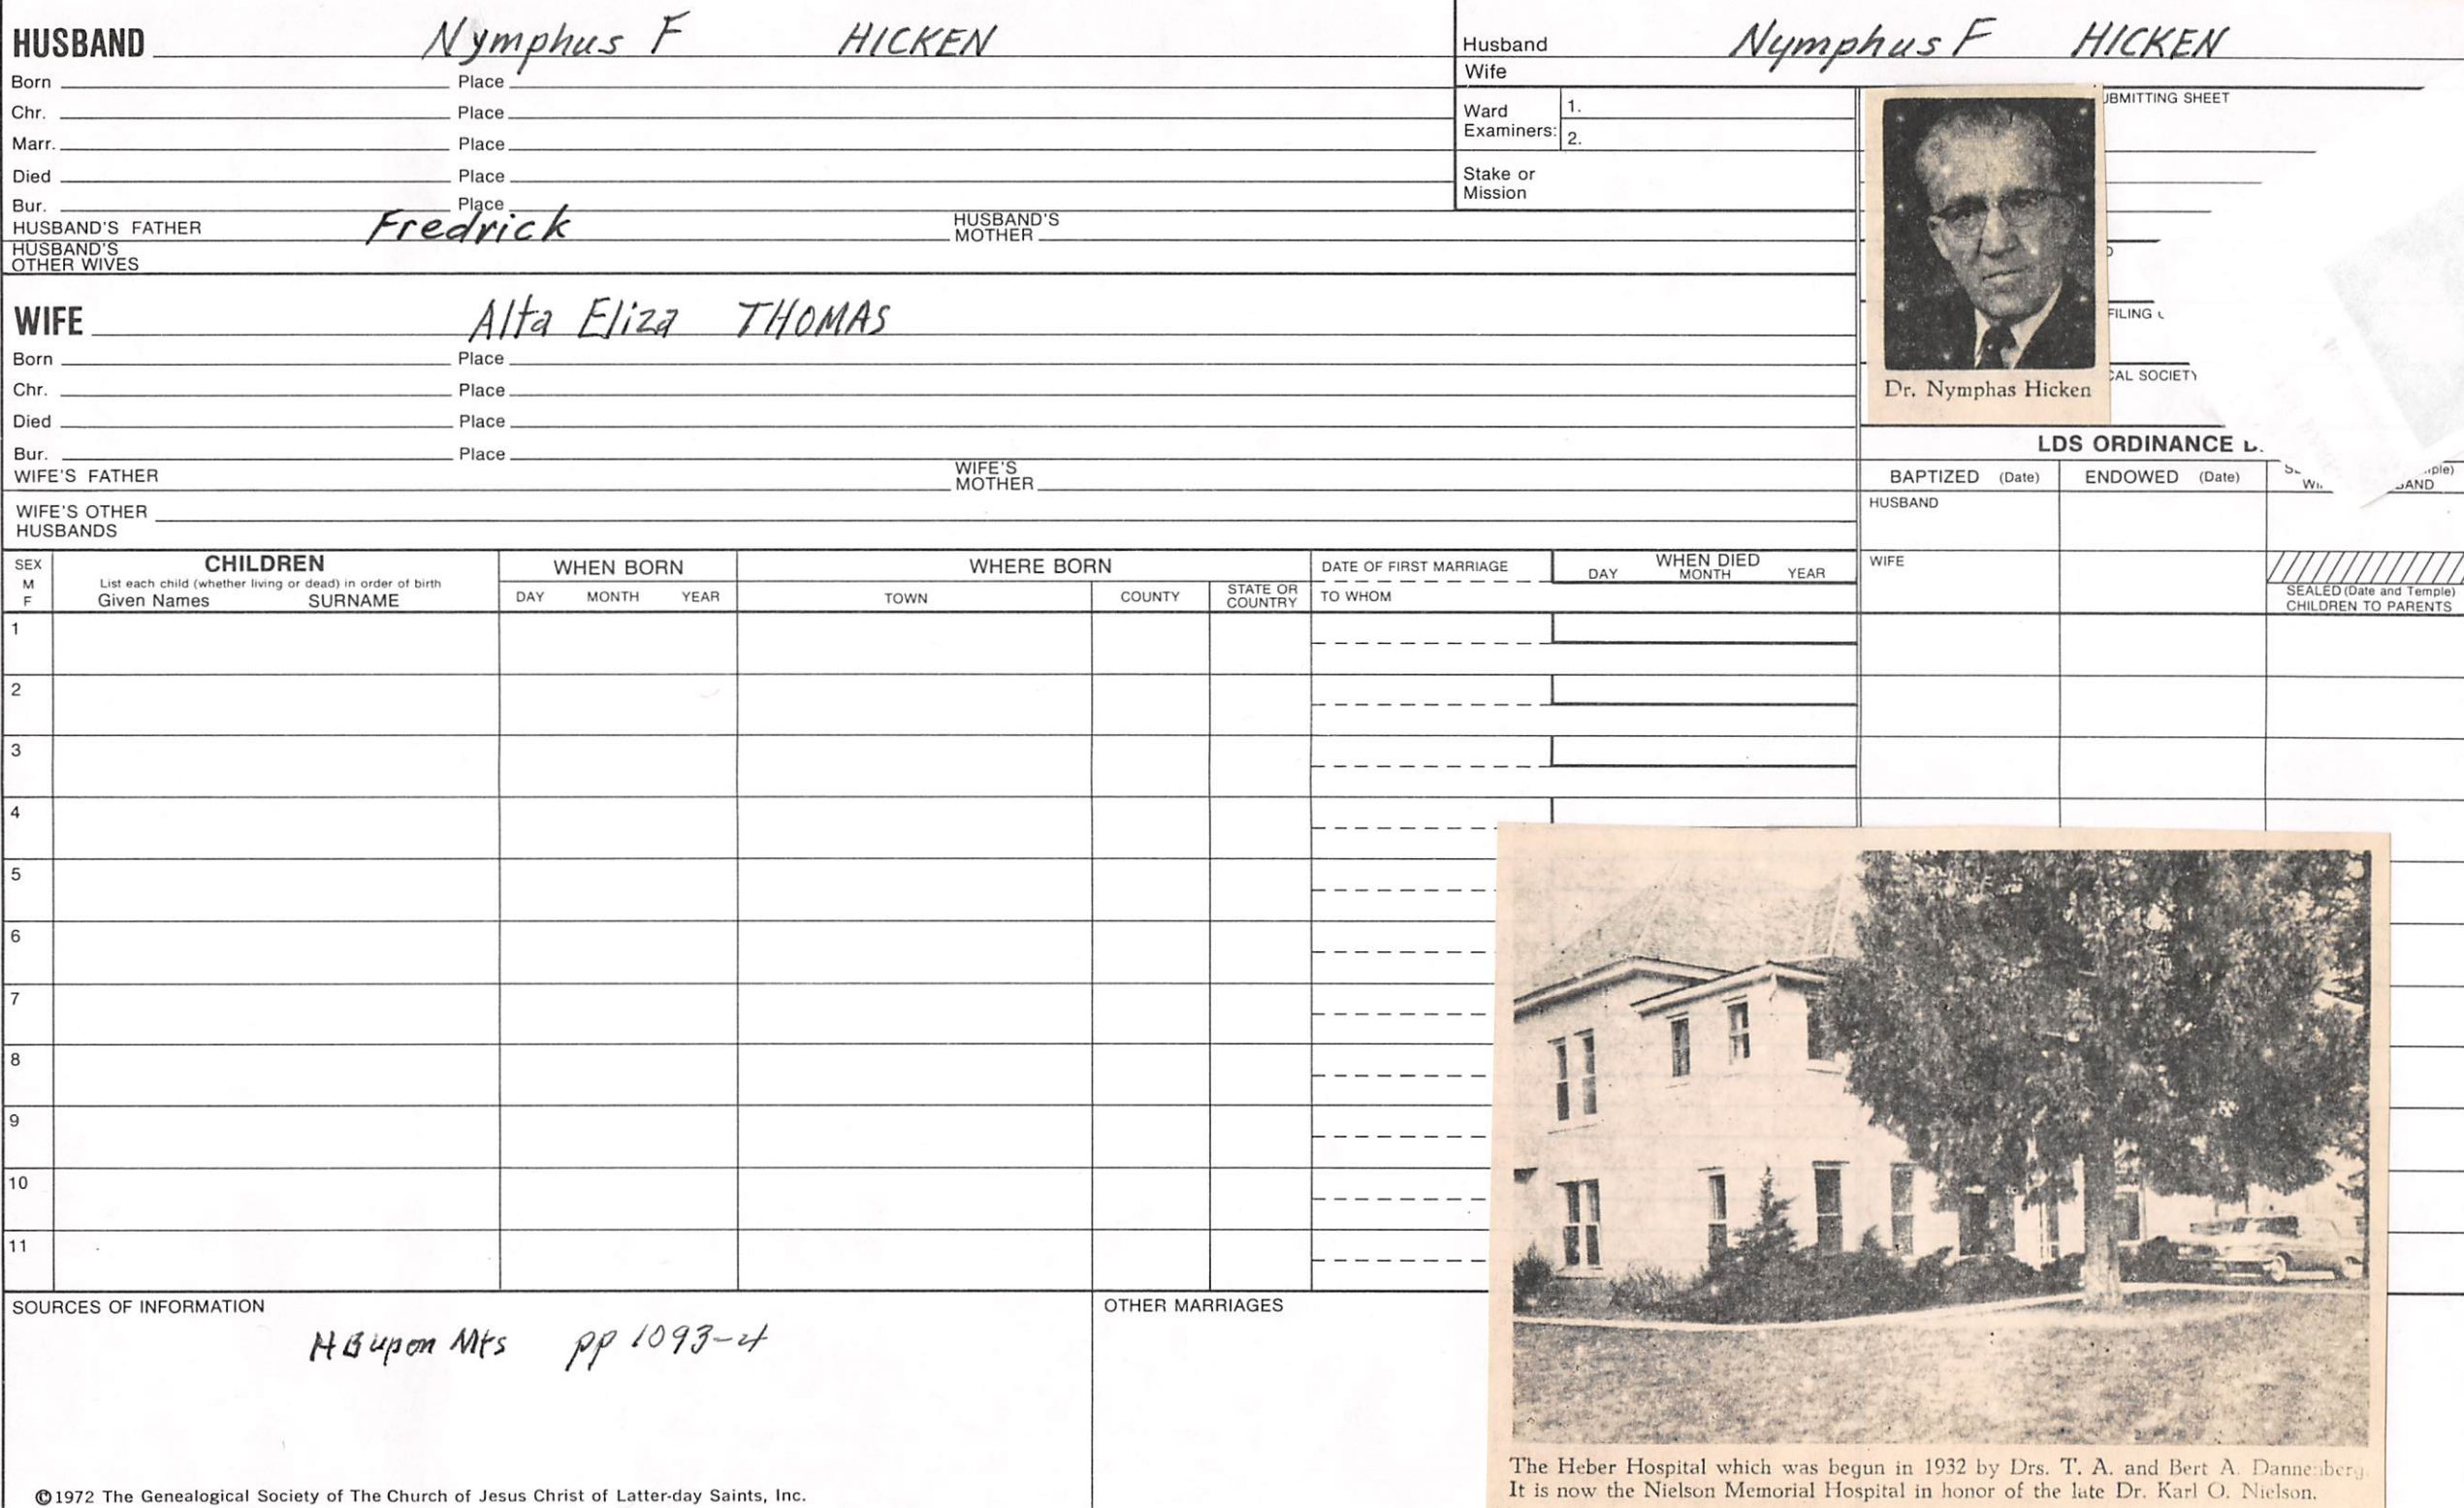 HUSBAND Nymphus F HICKEN
Born Place
Chr. Place
Marr. Place
Died Place
Bur. Place
HUSBAND'S FATHER Fredrick HUSBAND'S MOTHER
HUSBAND'S OTHER WIVES
WIFE Alta Eliza THOMAS
Born Place
Chr. Place
Died Place
Bur. Place
WIFE'S FATHER WIFE'S MOTHER
WIFE'S OTHER HUSBANDS
Husband Nymphus F HICKEN
Wife
Ward Examiners: 1.
2.
Stake or Mission
SUBMITTING SHEET
FILING
CAL SOCIETY
Dr. Nymphas Hicken
LDS ORDINANCE
BAPTIZED (Date) ENDOWED (Date)
HUSBAND
WIFE
SEALED (Date and Temple)
CHILDREN TO PARENTS
SEX
M
F
CHILDREN
List each child (whether living or dead) in order of birth
Given Names SURNAME
WHEN BORN
DAY MONTH YEAR
WHERE BORN
TOWN COUNTY STATE OR COUNTRY
DATE OF FIRST MARRIAGE
TO WHOM
WHEN DIED
DAY MONTH YEAR
1
2
3
4
5
6
7
8
9
10
11
SOURCES OF INFORMATION
H B upon Mts pp 1093-4
OTHER MARRIAGES
The Heber Hospital which was begun in 1932 by Drs. T. A. and Bert A. Dannenberg.
It is now the Nielson Memorial Hospital in honor of the late Dr. Karl O. Nielson.
©1972 The Genealogical Society of The Church of Jesus Christ of Latter-day Saints, Inc.